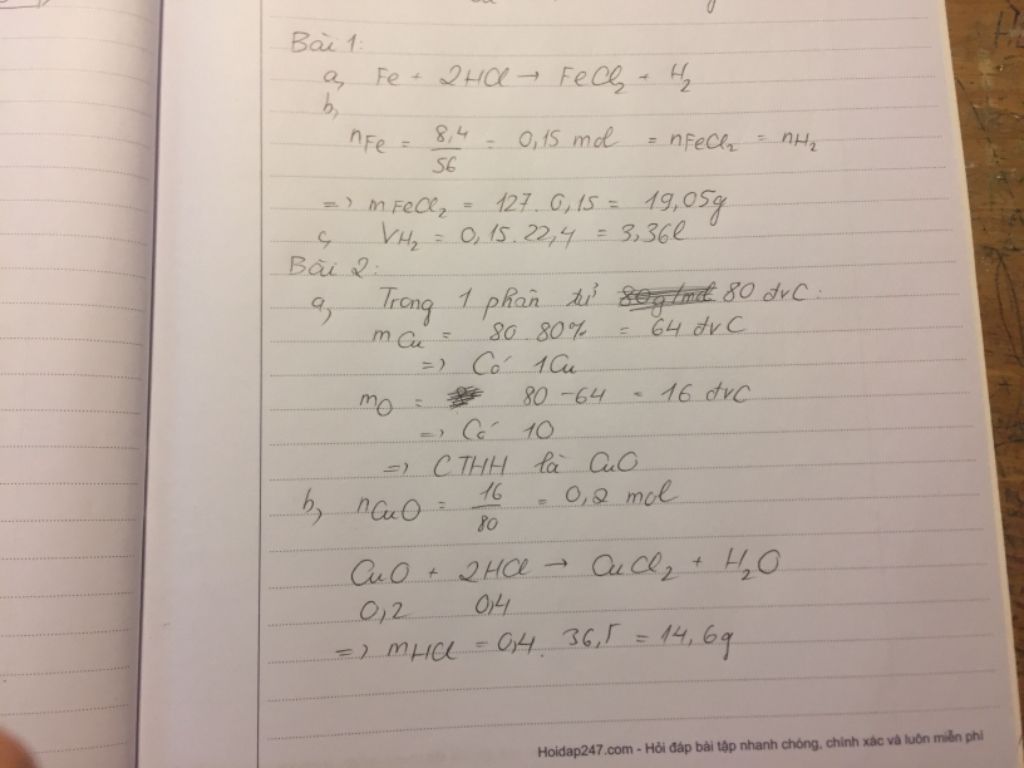 Bài 1:
a, Fe + 2HCl → FeCl₂ + H₂
b,
nFe = 8,4/56 = 0,15 mol = nFeCl₂ = nH₂
=> mFeCl₂ = 127. 0,15 = 19,05g
c, VH₂ = 0,15.22,4 = 3,36l
Bài 2:
a, Trong 1 phân tử 80g/mol 80 đvC:
mCu = 80.80% = 64 đvC
=> Có 1Cu
mO = 80 - 64 = 16 đvC
=> Có 1O
=> CTHH là CuO
b, nCuO = 16/80 = 0,2 mol
CuO + 2HCl → CuCl₂ + H₂O
0,2 0,4
=> mHCl = 0,4. 36,5 = 14,6g
Hoidap247.com - Hỏi đáp bài tập nhanh chóng, chính xác và luôn miễn phí